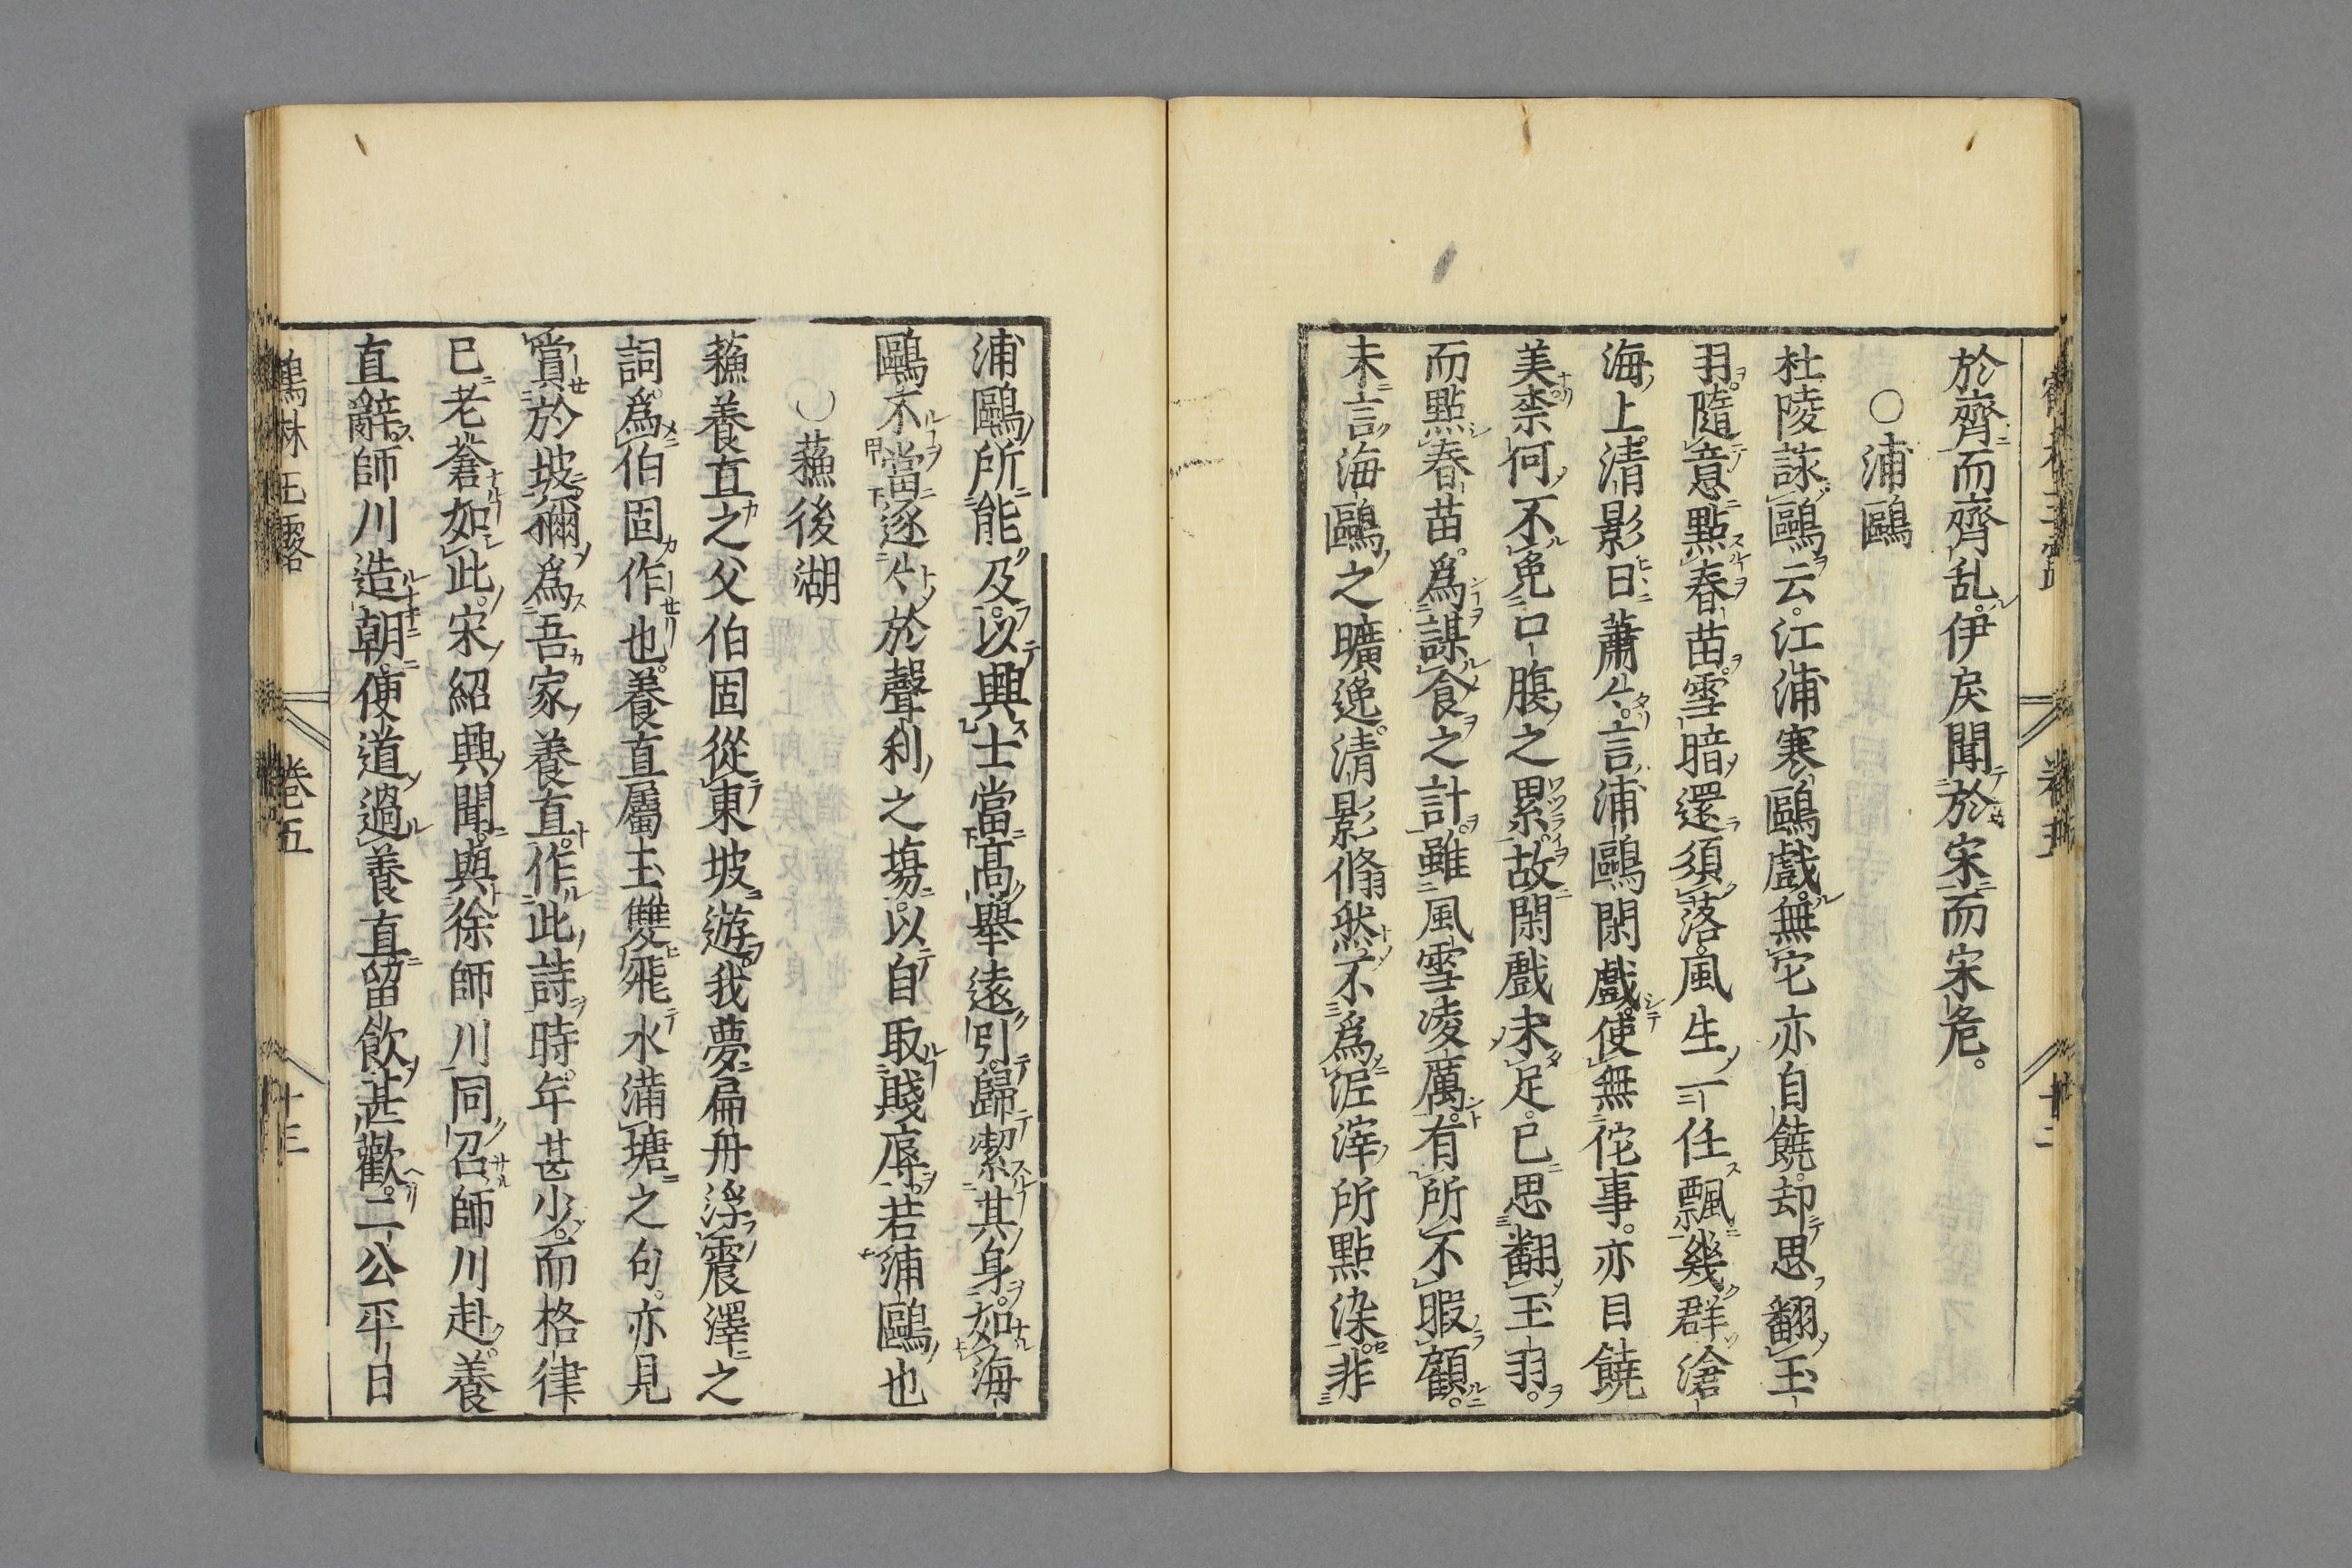 於齊而齊乱伊戻聞於宋而宋危。
○浦鷗
杜陵詠鷗云。江浦寒鷗戲。無宅亦自饒。却思翻玉
羽。隨意點春苗。雪暗還須落。風生一任飄。幾群滄
海上。清影日蕭〻。言浦鷗閑戲。使無佗事。亦自饒
美柰何不免口腹之累。故閑戲未足。已思翻玉羽。
而點春苗。爲謀食之計。雖風雪凌厲。有所不暇顧。
未言海鷗之曠逸。清影翛然。不爲泥滓所點染。非
浦鷗所能及。以興士當高擧遠引。歸潔其身。如海
鷗不當逐〻於聲利之塲。以自取賤辱。若浦鷗也
○蘓後湖
蘓養直之父伯固從東坡遊。我夢扁舟浮震澤之
詞。爲伯固作也。養直屬玉雙飛水滿塘之句。亦見
賞於坡。彌爲吾家養直。作此詩時。年甚少。而格律
已老蒼如此。宋紹興聞。與徐師川同召。師川赴。養
直辭師川造朝。便道過養直留飲甚歡。二公平日
鶴林玉露
卷五
十三